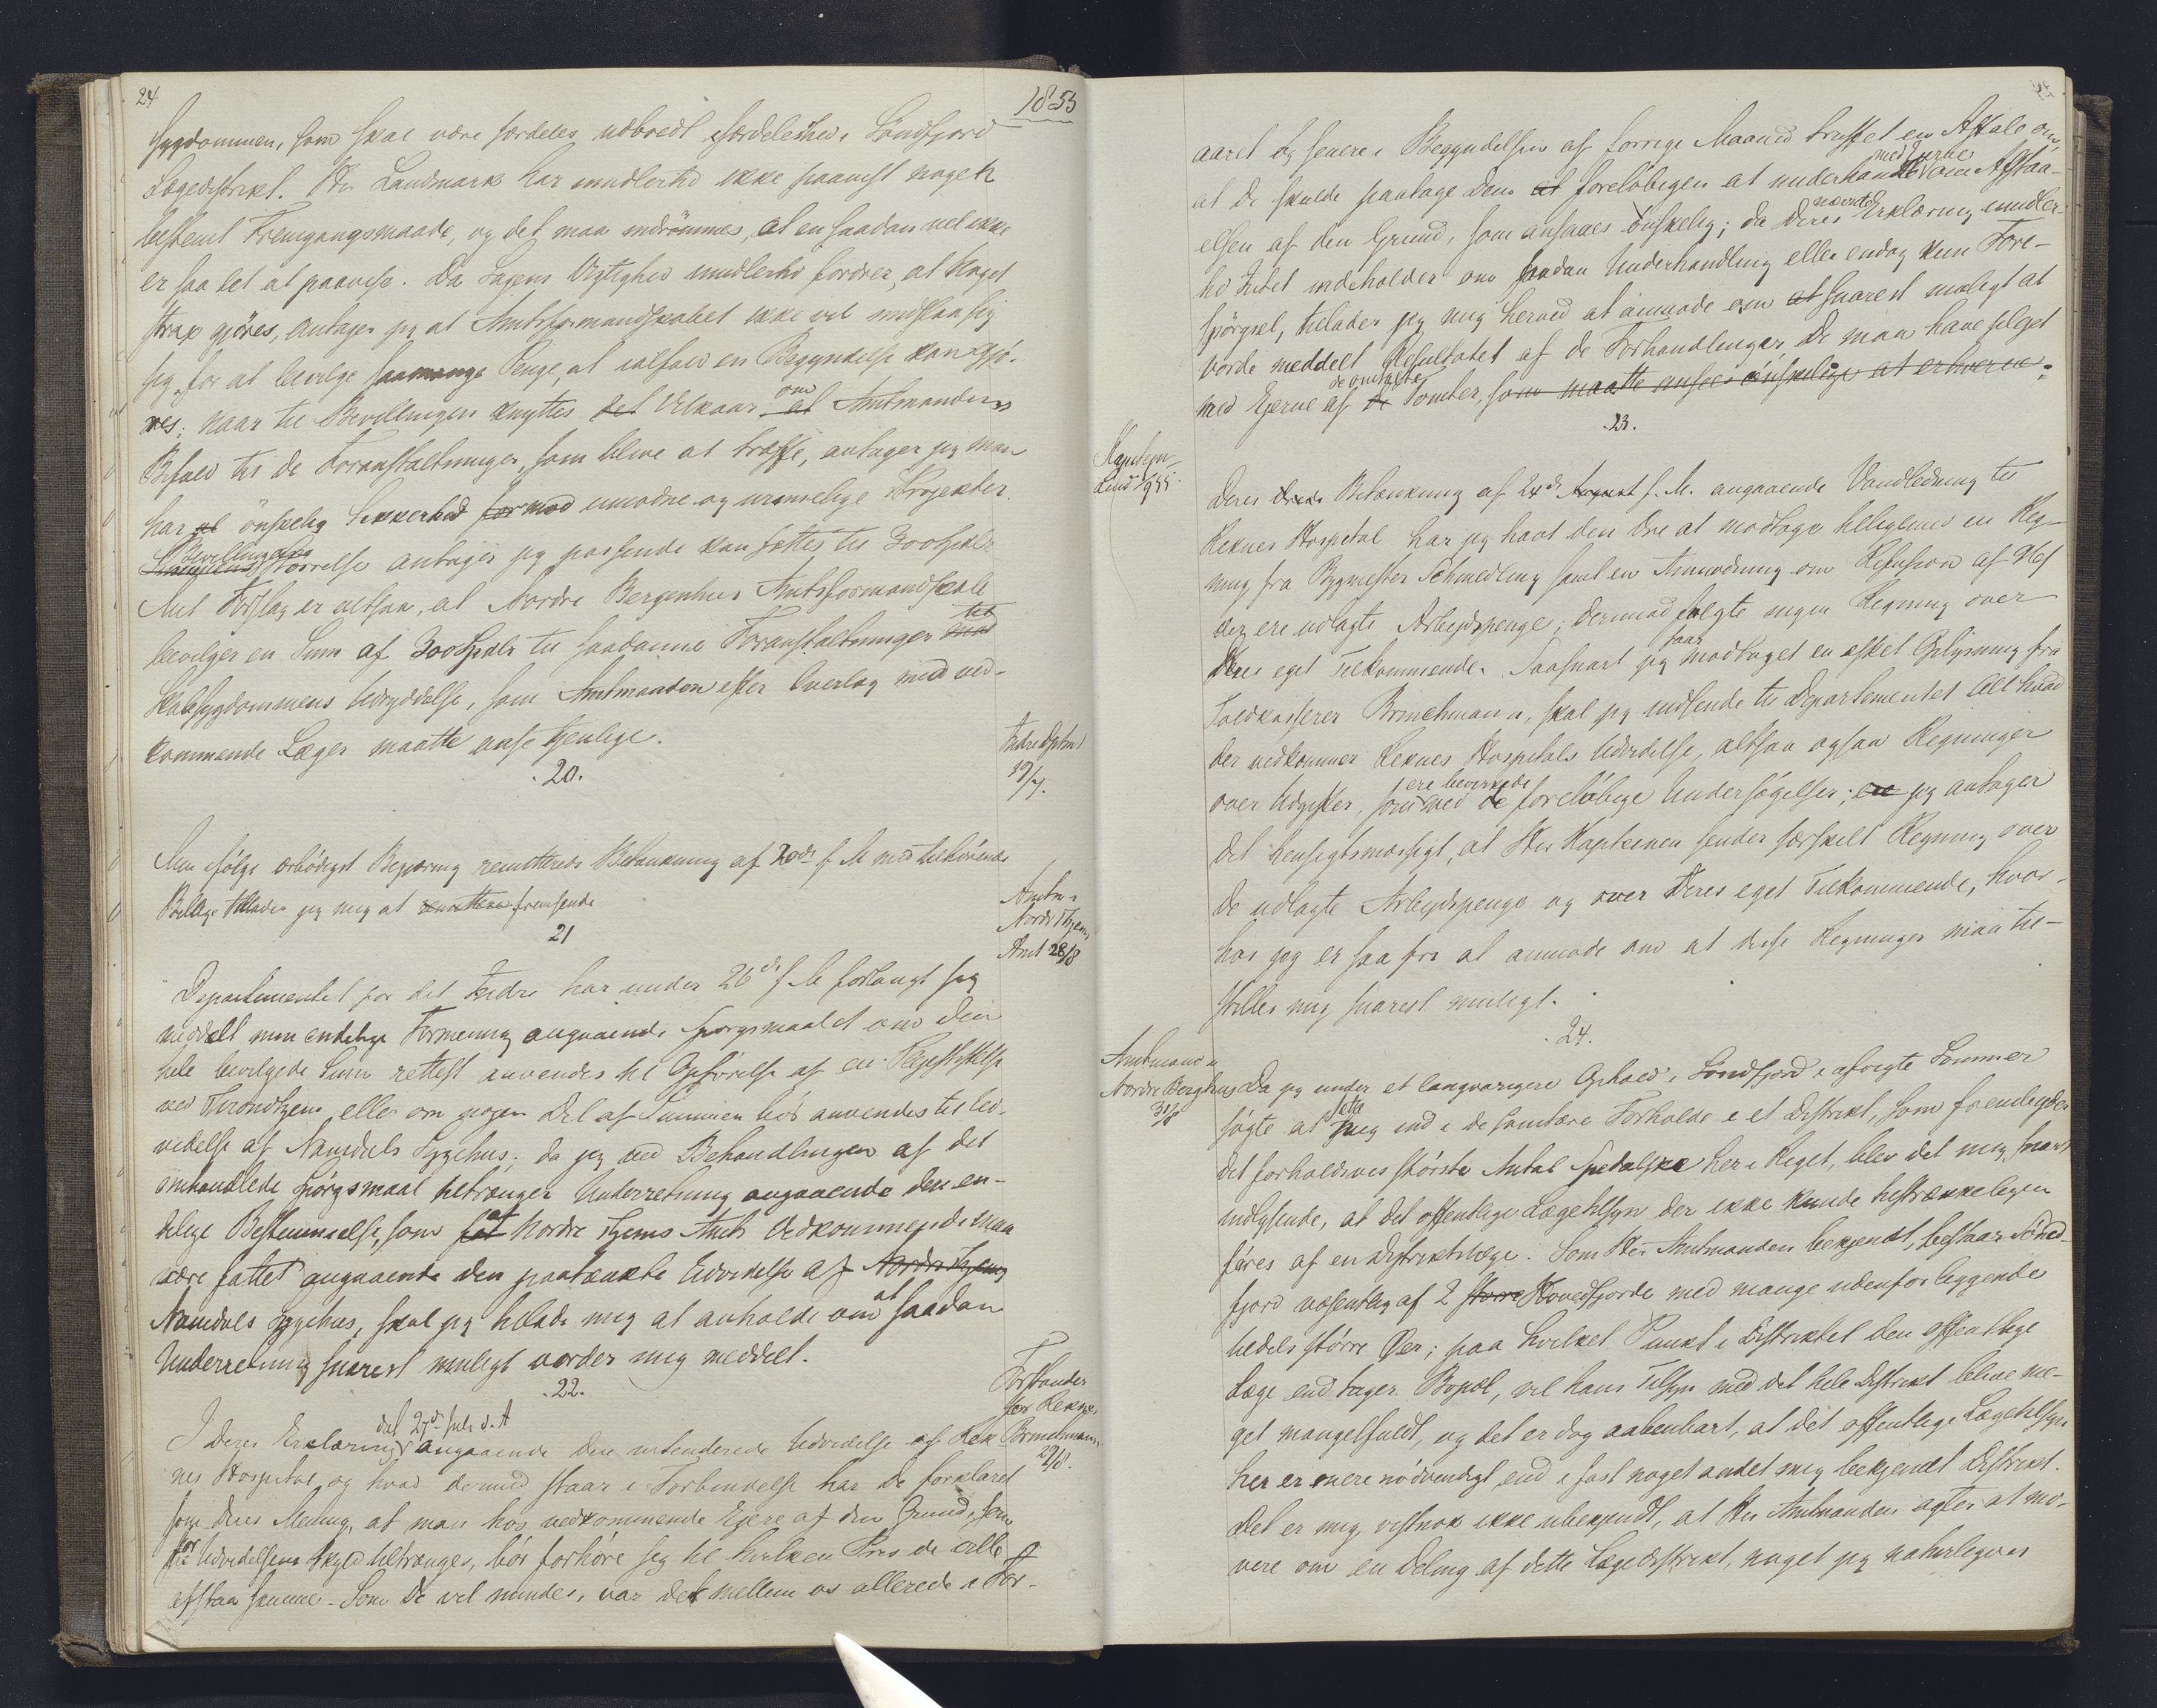 24
1855
sygdommen, som skal være særdeles udbredt isærdeleshed i Söndfjord
Lægedistrikt. Her Landmark har imidlertid ikke paavist nogen
bestemt Fremgangsmaade, og det maa indrömmes, at en saadan vel ikke
er saa let at paavise. Da Sagens Vigtighed imidlertid fordrer, at Noget
strax gjöres, antager jeg at Amtsformandskabet ikke vil undslaa sig
sig for at bevilge saamange Penge, at ialfald en Begyndelse kan gjö-
res; naar til Bevillingen knyttes det Vilkaar om at Amtmandens
Bifald til de Foranstaltninger, som blive at træffe, antager jeg man
har al önskelig Sikkerhed for mod umodne og urimelige Projekter.
Bevillingens Störrelse antager jeg passende kan sættes til 300 Spdlr
Mit Forslag er altsaa, at Nordre Bergenhus Amtsformandskab
bevilger en Sum af 300 Spdlr til saadanne Foranstaltninger mod til
Skabsygdommens Udryddelse, som Amtmanden efter Overlæg med ved-
kommende Læger maatte anse tjenlige.
Indredeptmt
19/7.
20.
Min ifölge ærbödigst Begjæring remitterede Betænkning af 20de f. M med tilhörende
Bilage tillader jeg mig at remittere fremsende
Amtm i
Nordr Thjems
Amt 28/8
21
Departementet for det Indre har under 26de f. M forlangt sig
meddelt min endelige Formening angaaende Spörgsmaalet om den
hele bevilgede Sum rettest anvendes til Opförelse af en Plejestiftelse
ved Throndhjem, eller om nogen Del af Summen bör anvendes til Ud-
videlse af Namdals Sygehus; da jeg ved Behandlingen af det
omhandlede Spörgsmaal betrænger Underretning angaaende den en-
delige Bestemmelse, som fat af Nordre Thjems Amts Vedkommende maa
være fattet angaaende den paatænkte Udvidelse af Nordre Thjems
Namdals Sygehus, skal jeg tillade mig at anholde om at saadan
Underretning snarest muligt vorder mig meddelt.
22.
Forstander
for Reknes
Brinchmann
29/8.
I Deres Erklæring dat 27de Juli d. A angaaende den intenderede Udvidelse af Rek
nes Hospital, og hvad dermed staar i Forbindelse har De forklaret
som Deres Mening, at man hos vedkommende Ejere af den Grund, som
for Udvidelsens Skyld tiltrænges, bör forhöre sig til hvilken Pris de ville
afstaa samme. Som De vel mindes, var det mellem os allerede i For-
aaret og senere i Begyndelsen af forrige Maaned truffet en Aftale om,
at De skulde paatage Dem at foreløbigen at underhandle med Ejerne om Afstaa-
elsen af den Grund, som ansaaes önskelig; da Deres nævnte Erklæring imidler-
tid Intet indeholder om saadan Underhandling eller endog kun Fore-
spörgsel, tillader jeg mig herved at anmode om at snarest muligt at
vorde meddelt Resultatet af de Forhandlinger, De maa have pleget
med Ejerne af de omtalte Tomter, som maatte ansees önskelige at erhverve.
23.
Kaptejn
Lund 1/9 55.
Deres Betænkning af 24de August f. M. angaaende Vandledning til
Reknes Hospital har jeg havt den Ære at modtage tilligemed en Reg-
ning fra Bygmester Schmedling samt en Anmodning om Refusion af
der ere udlagte Arbejdspenge; dermed fulgte ingen Regning over
Deres eget Tilkommende. Saasnart jeg faar modtaget en æsket Oplysning fra
Toldkasserer Brinchmann, skal jeg indsende til Departementet Alt hvad
der vedkommer Reknes Hospitals Udvidelse, altsaa ogsaa Regninger
over Udgifter, som ere bevirkede ved de forelöbige Undersögelser; jeg antager
det hensigtsmæssigt, at Her Kapteinen sender særskilt Regning over
de udlagte Arbejdspenge og over Deres eget Tilkommende, hvor-
hos jeg er saa fri at anmode om at disse Regninger maa til-
stilles mig snarest muligt.
24.
Amtmand i
Nordre Berghus
31/8
Da jeg under et langvarigere Ophold i Söndfjord i afvigte Sommer
sögte at sætte mig ind i de sanitære Forholde i et Distrikt, som frembyder
det forholdsvis störste Antal Spedalske her i Riget, blev det mig snart
indlysende, at det offentlige Lægetilsyn der ikke kunde tilstrækkeligen
föres af en Distriktslæge. Som Her Amtmanden bekjendt, bestaar Sönd-
fjord væsentlig af 2 större Hovedfjorde med mange udenfor liggende
tildels större Øer; paa hvilket Punkt i Distriktet den offentlige
Læge end tager Bopæl, vil hans Tilsyn med det hele Distrikt blive me-
get mangelfuldt, og det er dog aabenbart, at det offentlige Lægetilsyn
her er mere nödvendigt end i fast noget andet mig bekjendt Distrikt.
Det er mig vistnok ikke ubekjendt, at Her Amtmanden agter at mo-
vere om en Deling af dette Lægedistrikt, noget jeg naturligvis